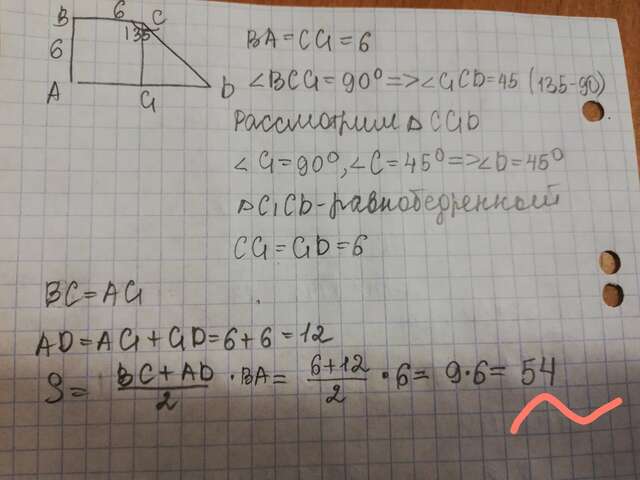 B 6 C
6 135
A G D
BA=CG=6
∠BCG=90°=>∠GCD=45 (135-90)
Рассмотрим △CGD
∠G=90°,∠C=45°=>∠D=45°
△GCD-равнобедренный
CG=GD=6
BC=AG
AD=AG+GD=6+6=12
S= (BC+AD)/2 ·BA= (6+12)/2 ·6= 9·6= 54